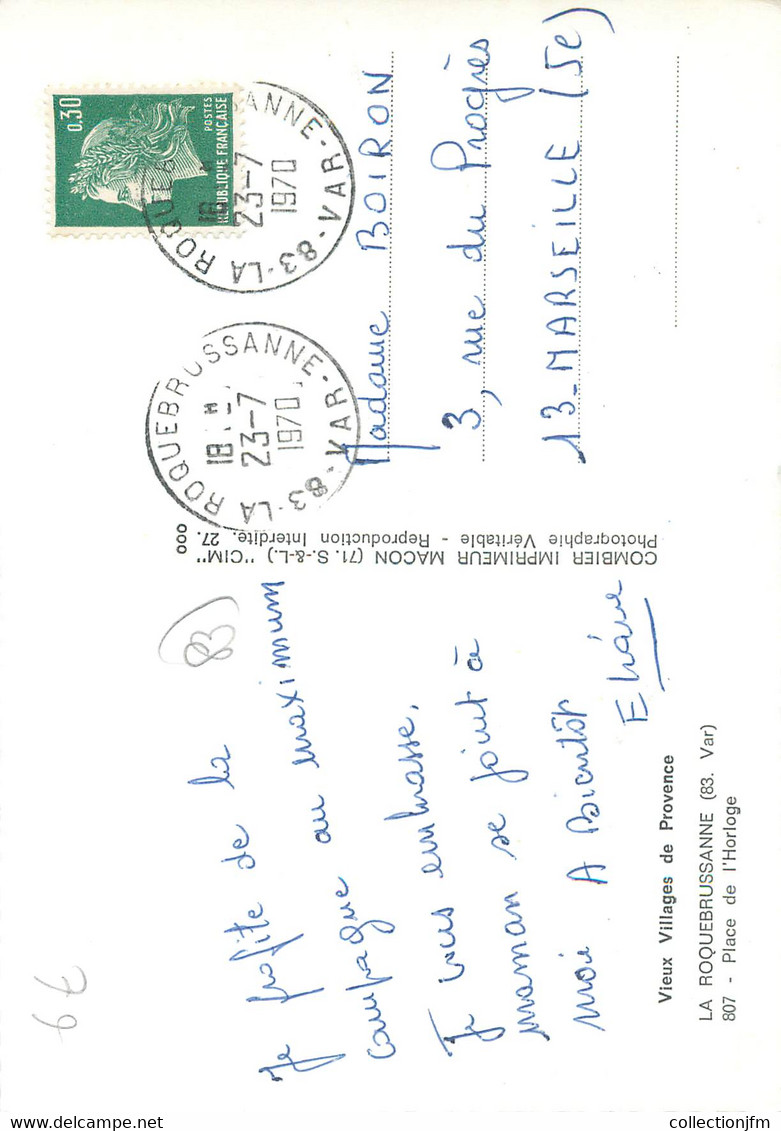 Je profite de la
campagne au maximum
Je vous embrasse,
maman se joint à
moi A Bientôt
Eliane
Vieux Villages de Provence
LA ROQUEBRUSSANNE (83. Var)
807 - Place de l'Horloge
COMBIER IMPRIMEUR MACON (71. S.-&-L.) "CIM"
Photographie Véritable - Reproduction Interdite. 27.
000
0,30
POSTES
REPUBLIQUE FRANÇAISE
83-LA ROQUEBRUSSANNE-VAR
18 H
23-7
1970
83-LA ROQUEBRUSSANNE-VAR
18 H
23-7
1970
Madame BOIRON
3, rue du Progrès
13-MARSEILLE (5e)
83
6€
collectionjfm